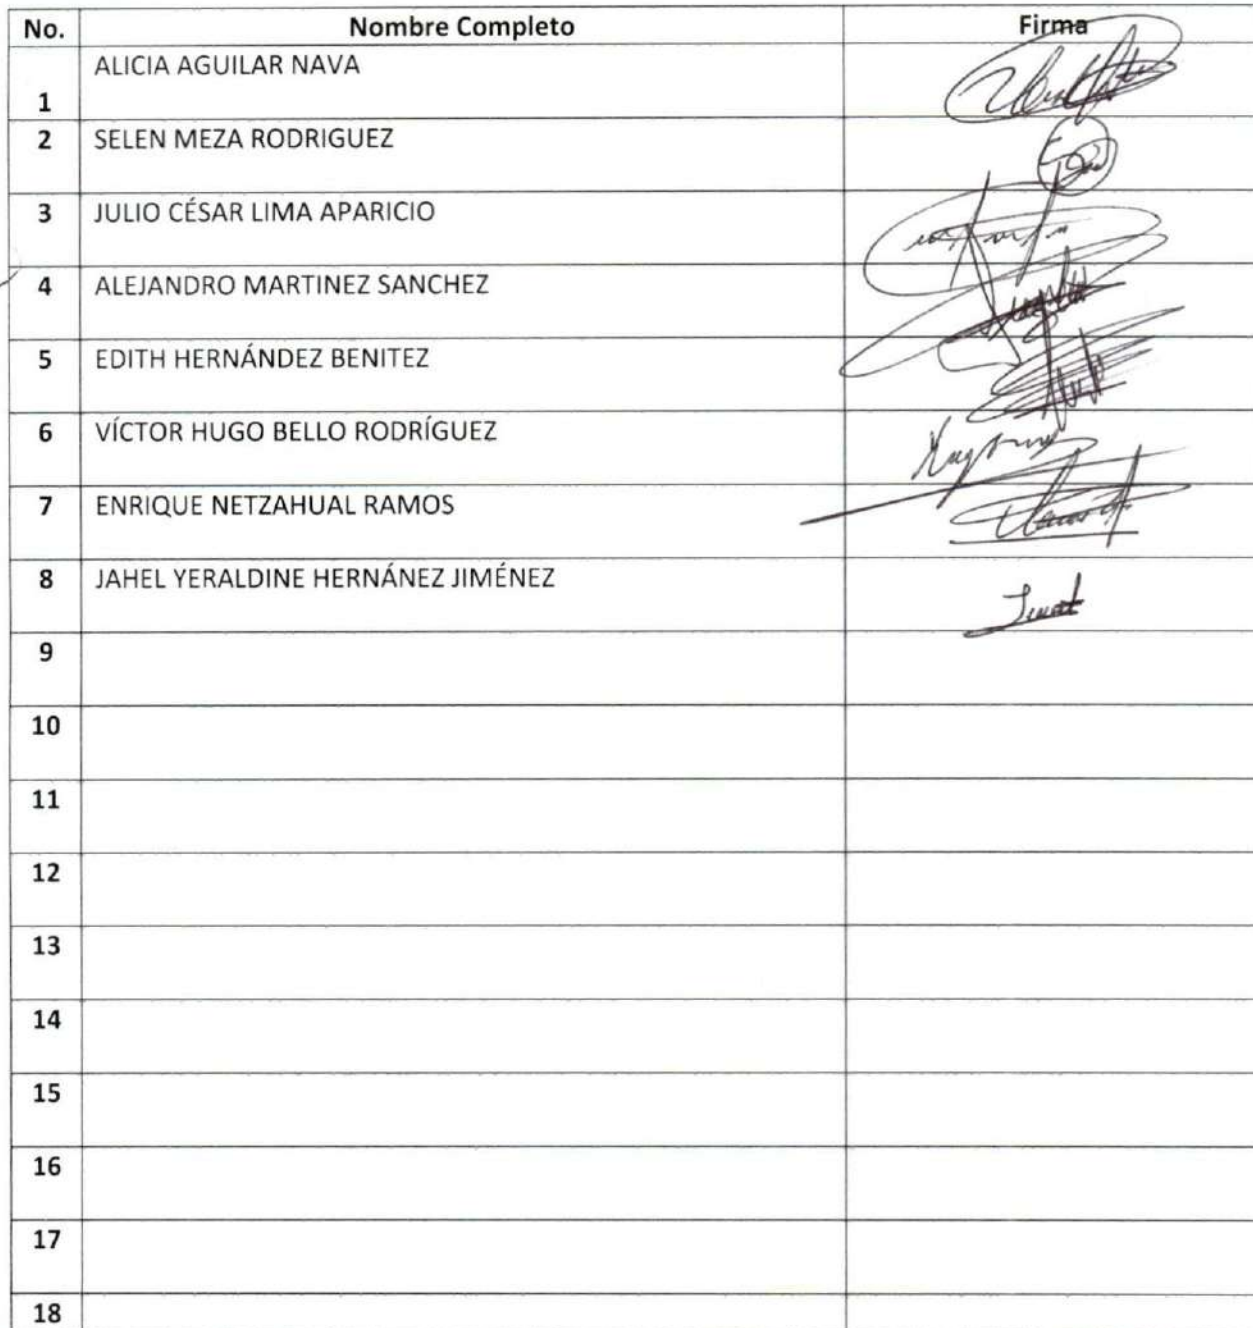 No. Nombre Completo Firma
1 ALICIA AGUILAR NAVA
2 SELEN MEZA RODRIGUEZ
3 JULIO CÉSAR LIMA APARICIO
4 ALEJANDRO MARTINEZ SANCHEZ
5 EDITH HERNÁNDEZ BENITEZ
6 VÍCTOR HUGO BELLO RODRÍGUEZ
7 ENRIQUE NETZAHUAL RAMOS
8 JAHEL YERALDINE HERNÁNEZ JIMÉNEZ
9
10
11
12
13
14
15
16
17
18